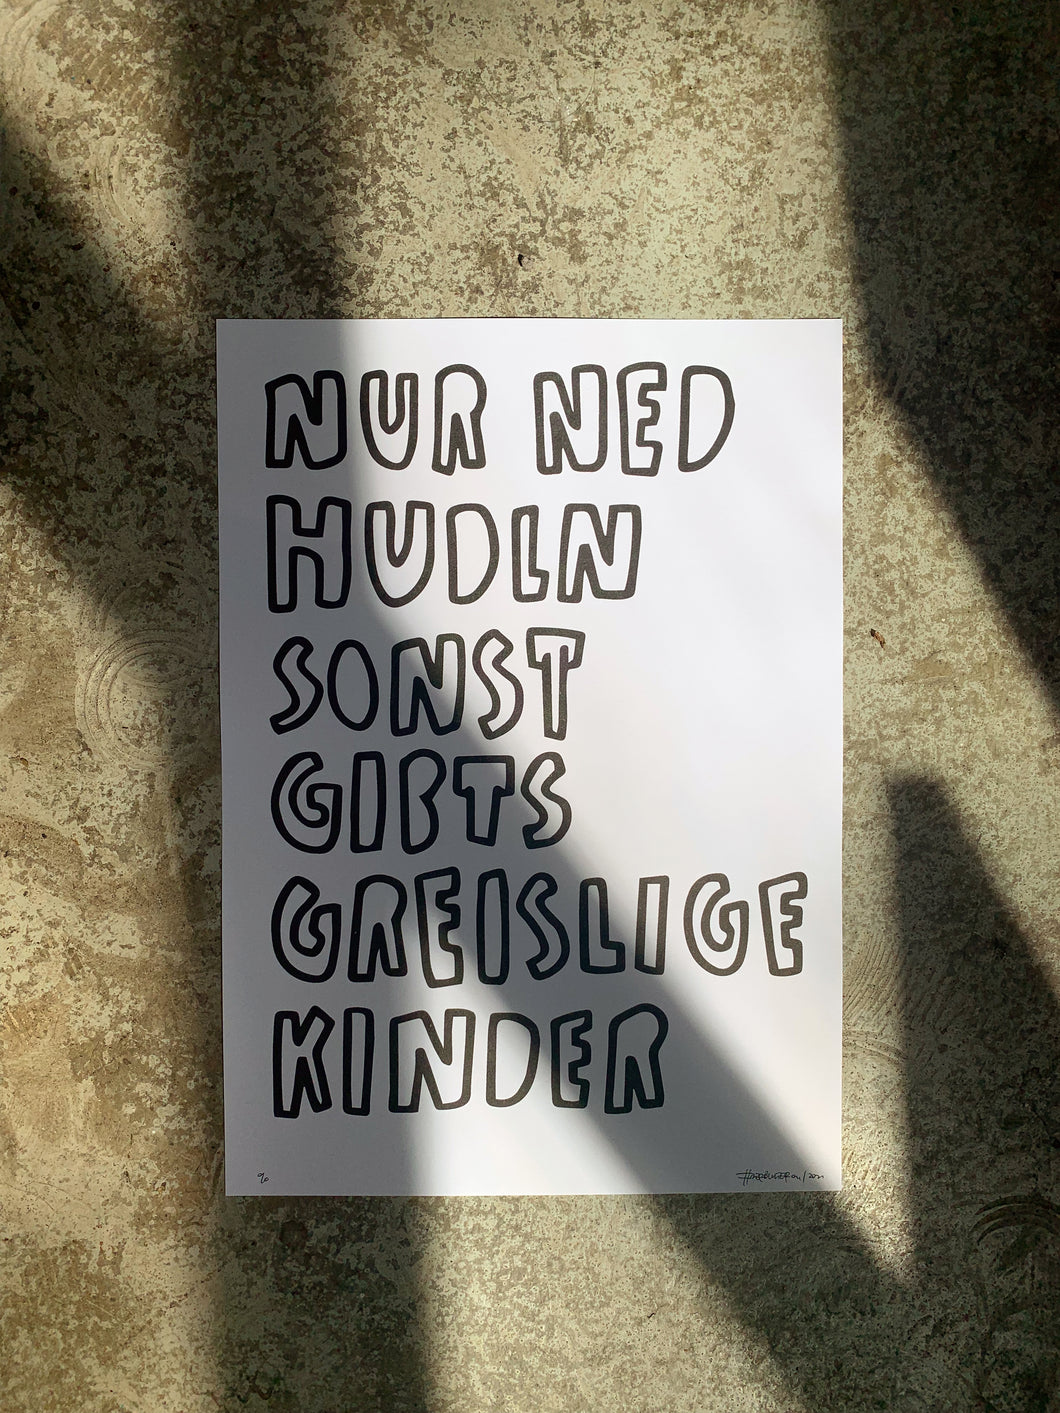 NUR NED
HUDLN
SONST
GIBTS
GREISLIGE
KINDER